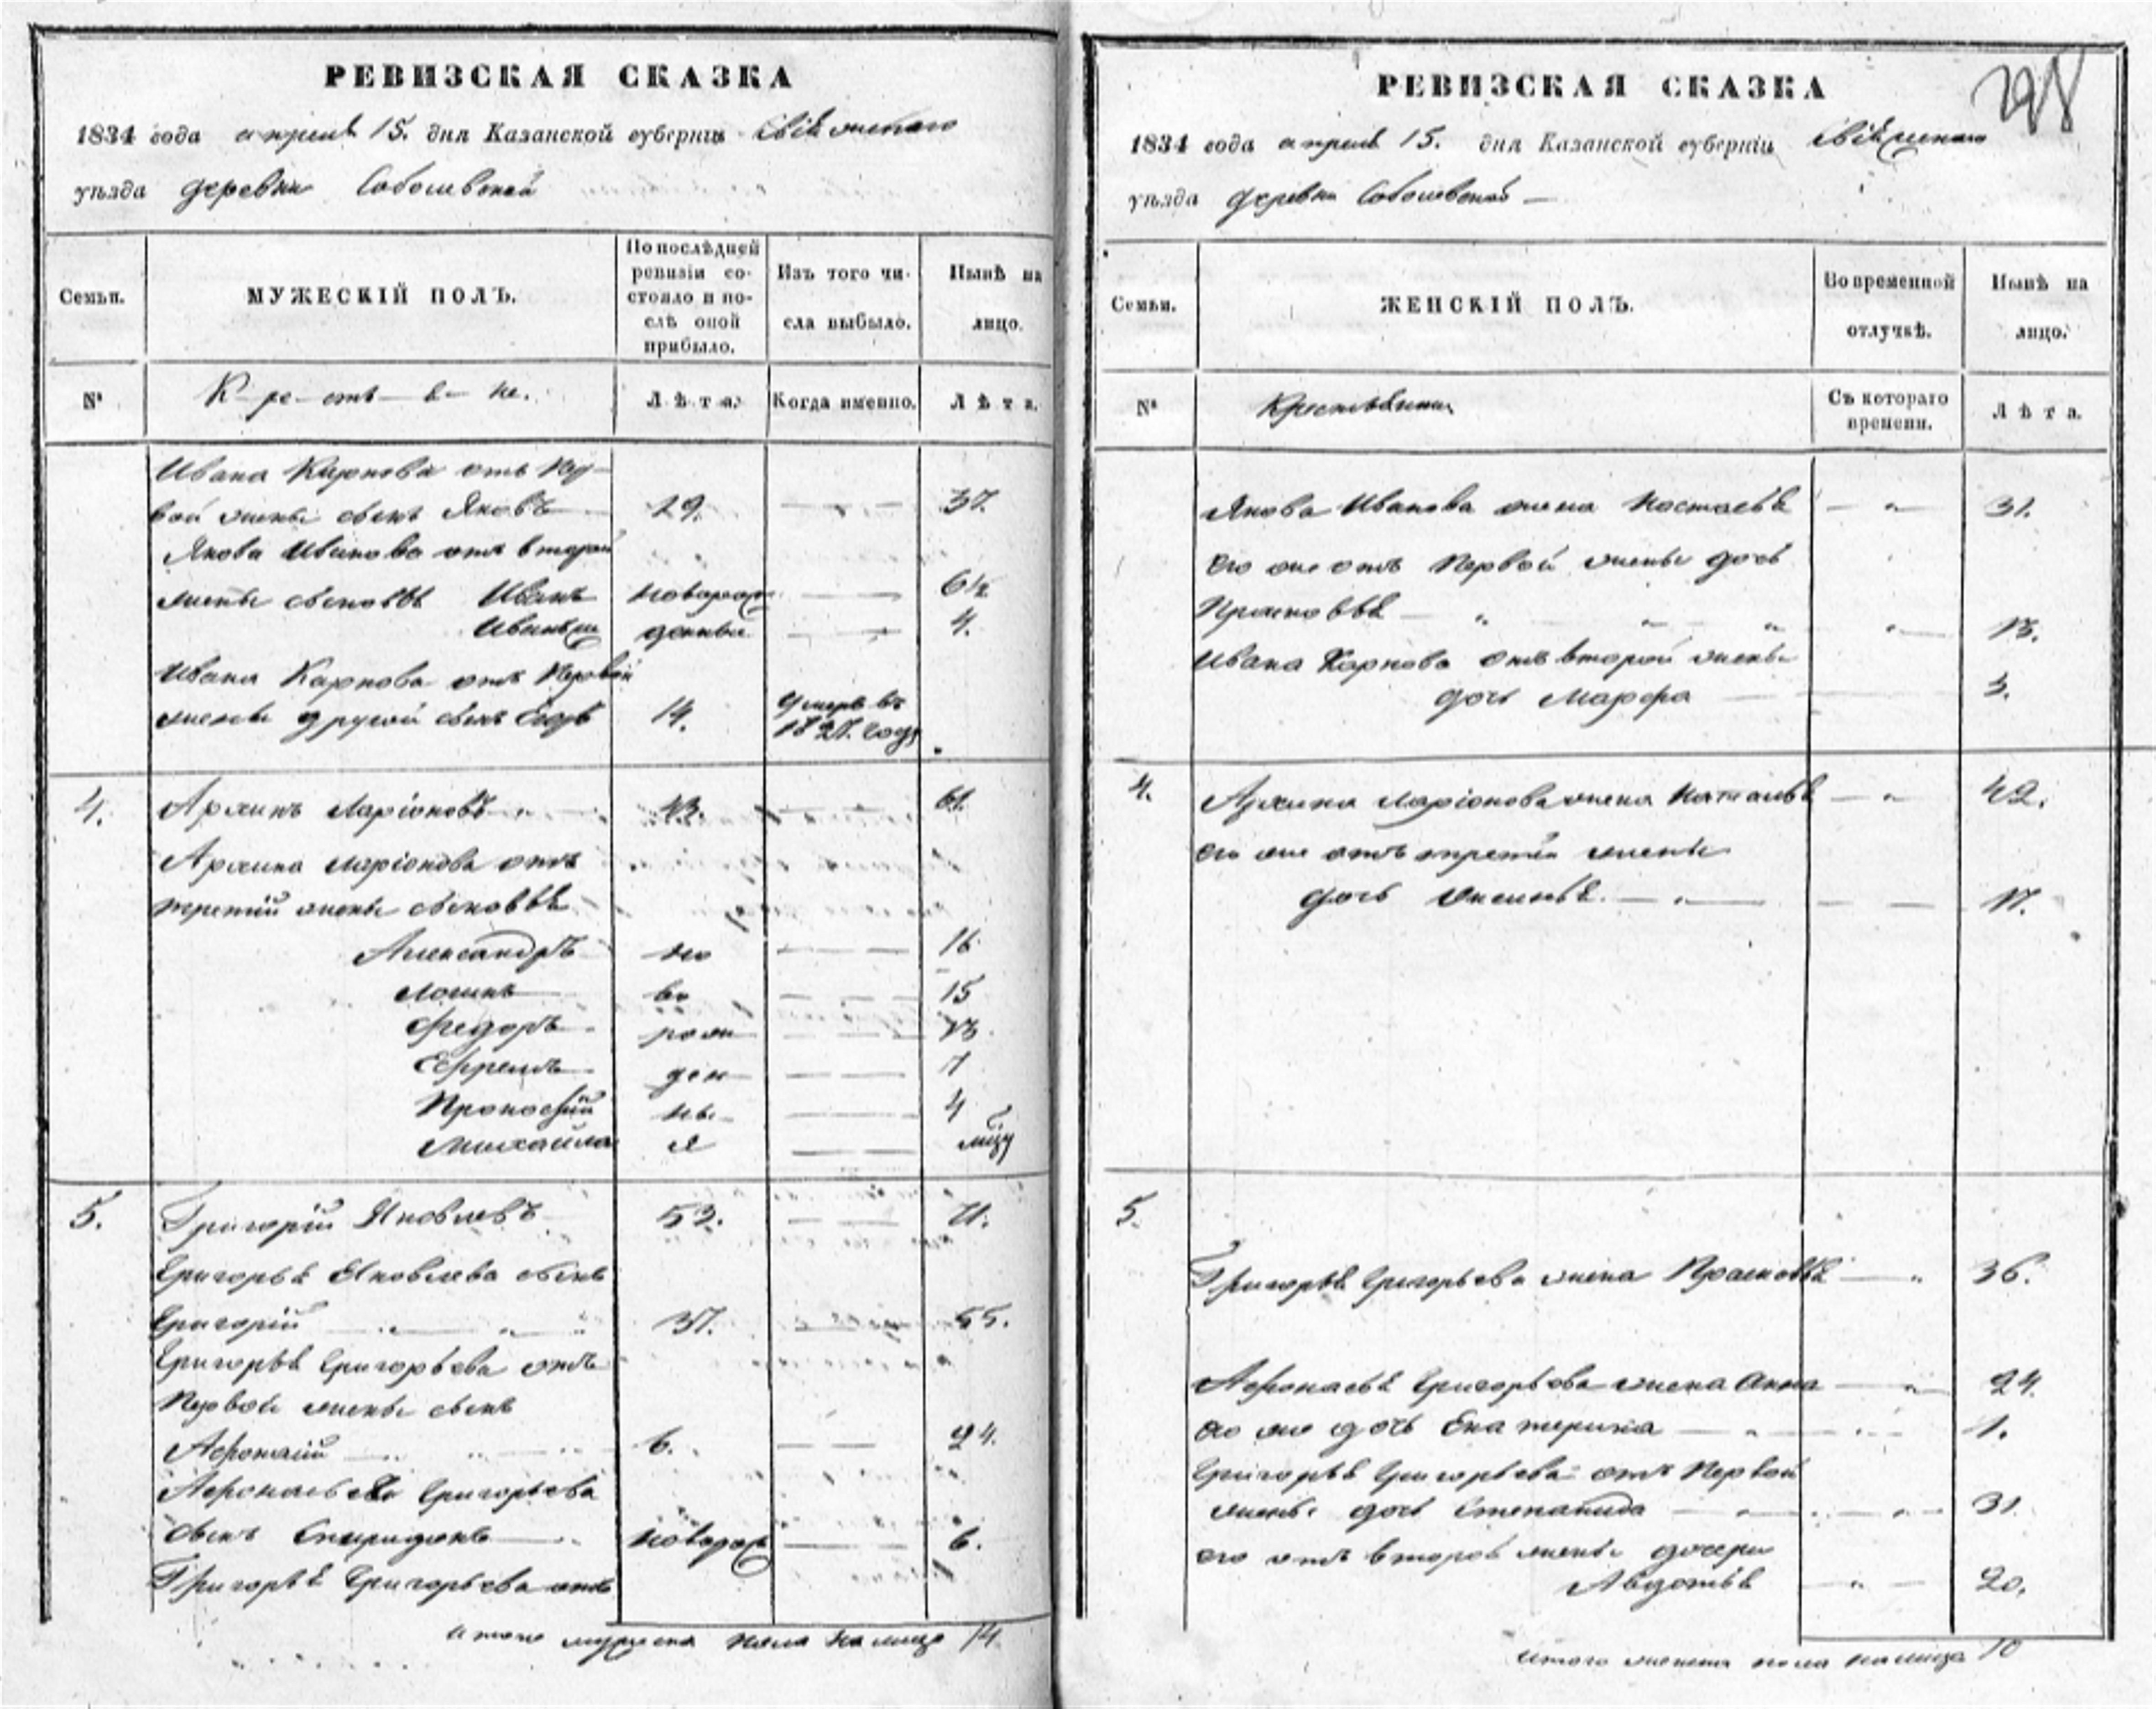 РЕВИЗСКАЯ СКАЗКА
1834 года апреля 15. дня Казанской губерніи Свіяжскаго
уѣзда деревни Соболевской
Семьи.
МУЖЕСКІЙ ПОЛЪ.
По послѣдней ревизіи состояло и послѣ оной прибыло.
Изъ того числа выбыло.
Нынѣ на лицо.
№
К-ре-стъ-я-не.
Лѣта.
Когда именно.
Лѣта.
Ивана Карпова отъ Пер-
вой жены сынъ Яковъ 19. 37.
Якова Иванова отъ второй
жены сыновья Иванъ новорож 6½
денные 4.
Ивана Карпова отъ Первой
жены другой сынъ Егоръ 14. умеръ въ 1827. году
4. Архипъ Ларіоновъ 43. 61.
Архипа Ларіонова отъ
третій жены сыновья
Александръ но 16
Логинъ во 15
Федоръ рож 13
Ефремъ ден 7
Прокофій ны 4
Михайла я
5. Григорій Яковлевъ 53. 71.
Григорья Яковлева сынъ
Григорій 37. 55.
Григорья Григорьева отъ
Первой жены сынъ
Афонасій 6. 24.
Афонасья Григорьева
сынъ Спиридонъ новорож 6.
Григорья Григорьева отъ
Итого мужеска пола на лицо 14
РЕВИЗСКАЯ СКАЗКА
1834 года апреля 15. дня Казанской губерніи Свіяжскаго
уѣзда деревни Соболевской
Семьи.
ЖЕНСКІЙ ПОЛЪ.
Во временной отлучкѣ.
Нынѣ на лицо.
№
Крестьянки
Съ котораго времени.
Лѣта.
Якова Иванова жена Настасья 31.
его же отъ Первой жены дочь
Прасковья 13.
Ивана Карпова отъ второй жены
дочь Марфа 3.
4. Архипа Ларіонова жена Наталья 42.
его же отъ третій жены
дочь Аксинья 17.
5.
Григорья Григорьева жена Прасковья 36.
Афонасья Григорьева жена Анна 24.
его же дочь Екатерина 1.
Григорья Григорьева отъ Первой
жены дочь Степанида 31
его отъ второй жены дочери
Авдотья 20.
Итого женска пола на лицо 10